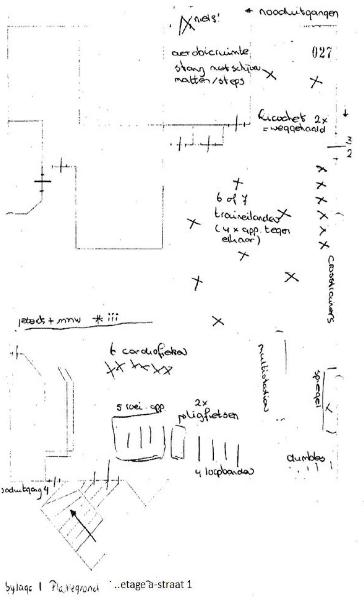 niets!
← nooduitgangen
aerobicruimte
027
stang met schijven
matten/steps
Ricochet 2x
= weggehaald
6 of 7
traineilanden
(4x app. tegen
elkaar)
crosstrainers
6 cardiofietsen
multistation
spiegel
5 roei app.
2x
poligfietsen
4 loopbanden
dumbles
nooduitgang 4
bylage 1 Plattegrond ..etage a-straat 1